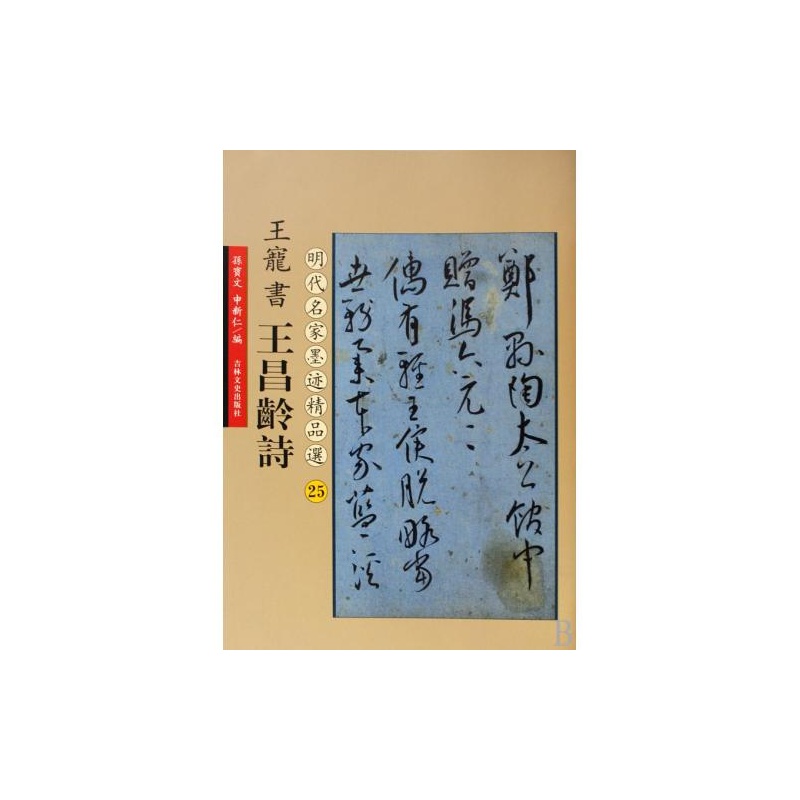 王寵書 王昌齡詩
明代名家墨迹精品選 25
孫寶文 申新仁/編
吉林文史出版社
鄭縣陶太公館中
贈馮六元二
儒有輕王侯脫略當
世務本家藍溪
B